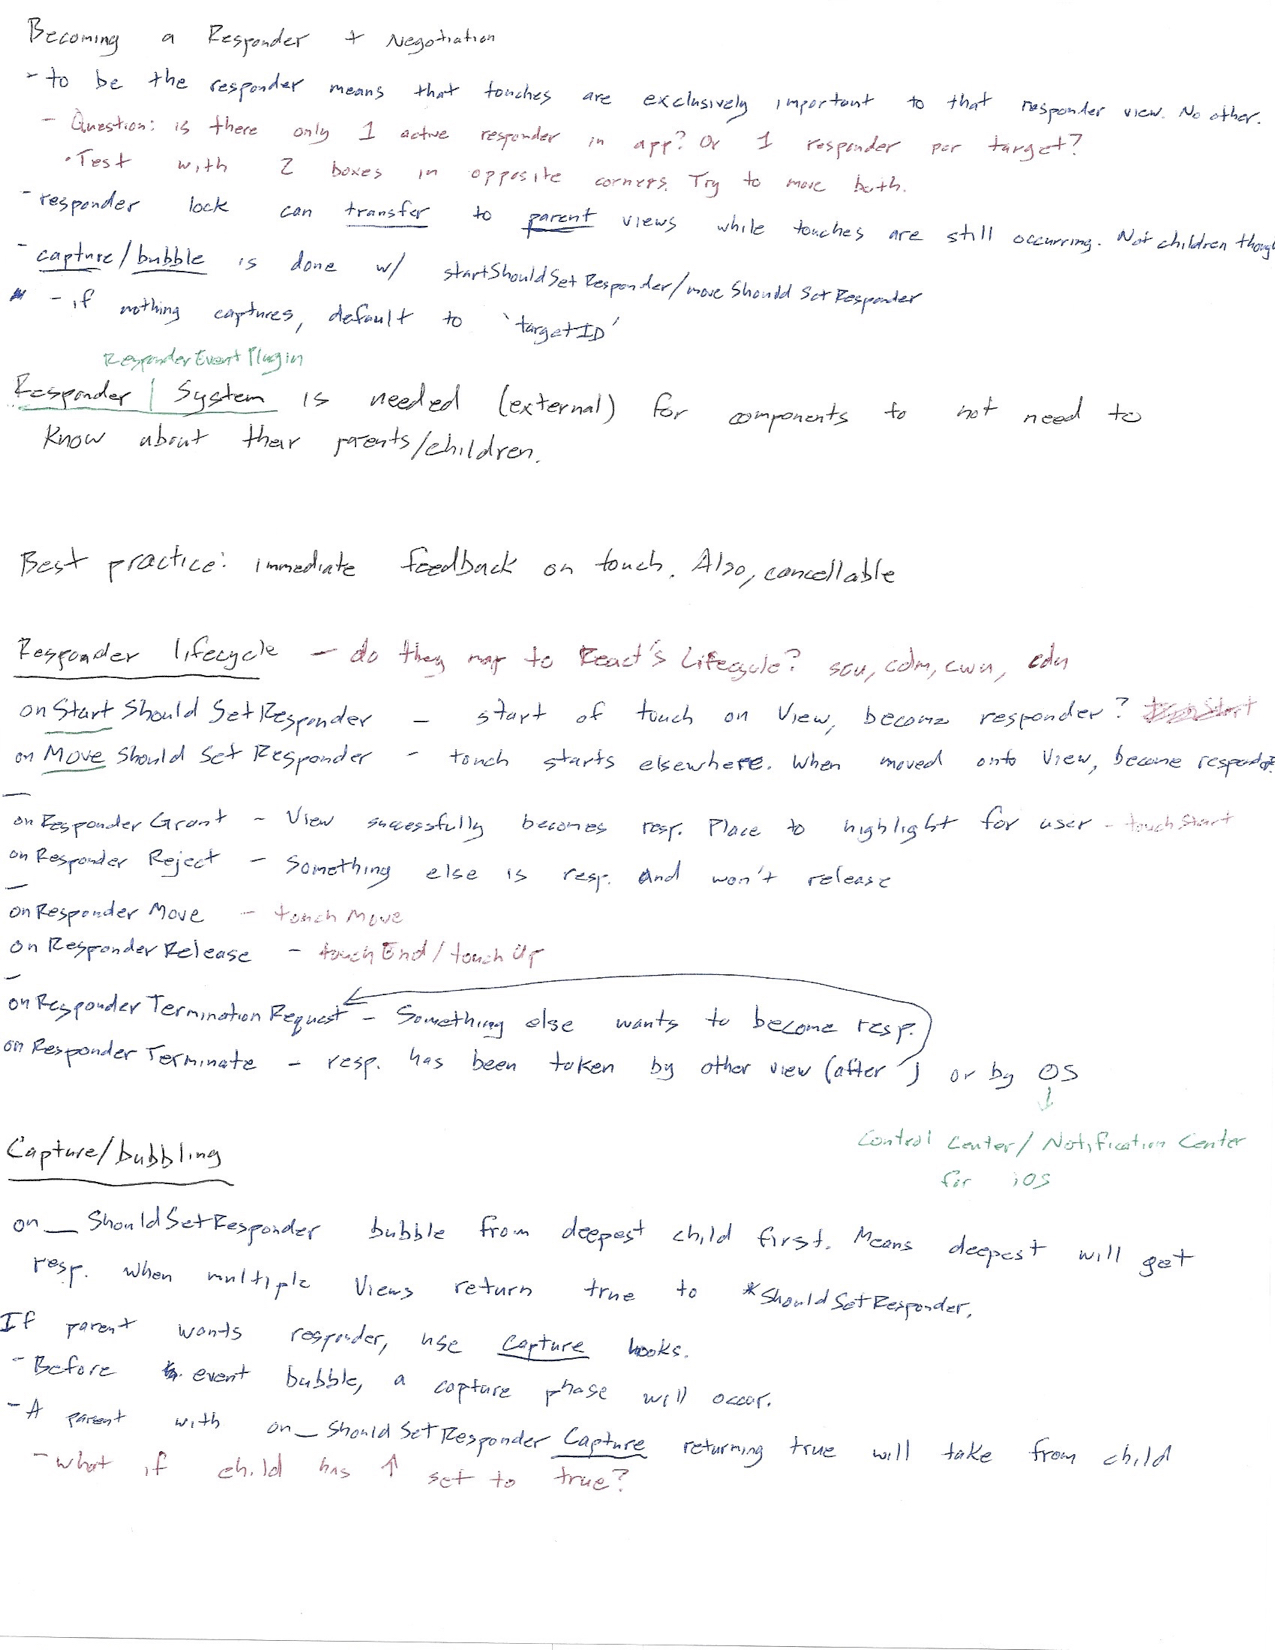 Becoming a Responder + Negotiation
- to be the responder means that touches are exclusively important to that responder view. No other.
- Question: is there only 1 active responder in app? Or 1 responder per target?
• Test with 2 boxes in opposite corners. Try to move both.
- responder lock can transfer to parent views while touches are still occurring. Not children though
- capture/bubble is done w/ startShouldSetResponder/moveShouldSetResponder
- if nothing captures, default to 'targetID'
ResponderEventPlugin
Responder | System is needed (external) for components to not need to
know about their parents/children.
Best practice: immediate feedback on touch. Also, cancellable
Responder lifecycle - do they map to React's Lifecycle? scu, cdm, cwu, cdu
onStartShouldSetResponder - start of touch on View, become responder?
onMoveShouldSetResponder - touch starts elsewhere. When moved onto View, become responder?
onResponderGrant - View successfully becomes resp. Place to highlight for user - touchStart
onResponderReject - Something else is resp. and won't release
onResponderMove - touchMove
onResponderRelease - touchEnd/touchUp
onResponderTerminationRequest - Something else wants to become resp.
onResponderTerminate - resp. has been taken by other view (after ) or by OS
Control Center/Notification Center
for iOS
Capture/bubbling
on__ShouldSetResponder bubble from deepest child first. Means deepest will get
resp. when multiple Views return true to *ShouldSetResponder.
If parent wants responder, use capture hooks.
- Before event bubble, a capture phase will occur.
- A parent with on_ShouldSetResponderCapture returning true will take from child
- what if child has ↑ set to true?